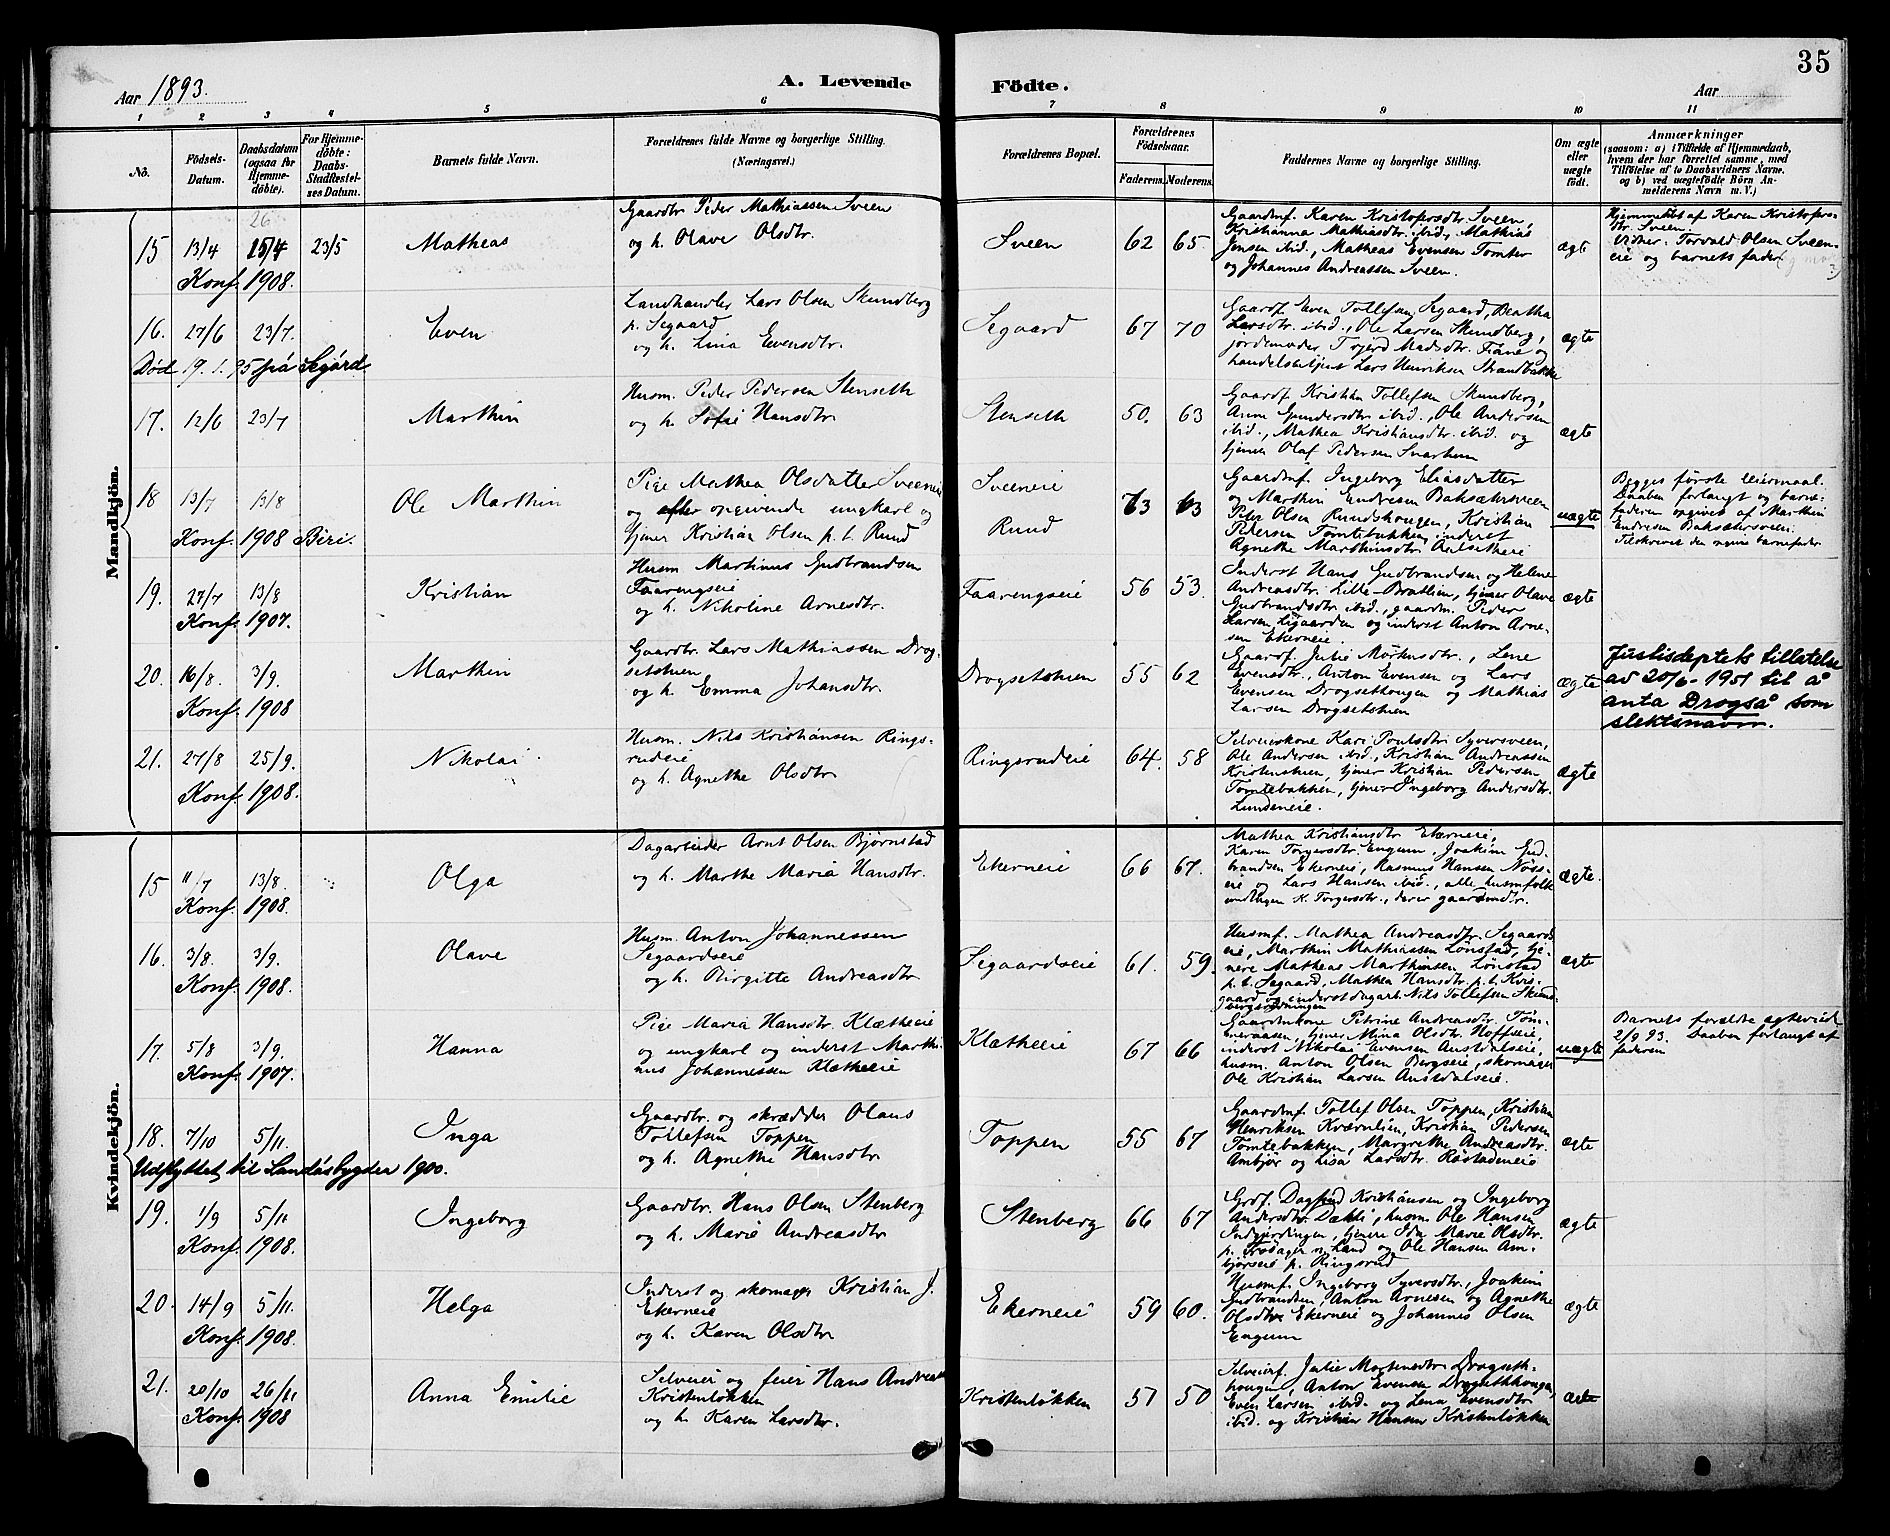 35
Aar 1893.
A. Levende Födte.
Aar
1 2 3 4 5 6 7 8 9 10 11
No.
Födsels-Datum.
Daabsdatum (ogsaa for Hjemme-döbte).
For Hjemme-döbte: Daabs-Stadfæstel-ses Datum.
Barnets fulde Navn.
Forældrenes fulde Navne og borgerlige Stilling. (Næringsvei.)
Forældrenes Bopæl.
Forældrenes Födselsaar.
Faderens. Moderens.
Faddernes Navne og borgerlige Stilling.
Om ægte eller uægte födt.
Anmærkninger
(saasom: a) i Tilfælde af Hjemmedaab,
hvem der har forrettet samme, med
Tilföielse af to Daabsvidners Navne.
og b) ved uægtefödte Börn An-
melderens Navn m. V.)
Mandkjön.
26
15 13/4 15/4 23/5 Matheas
Gaardbr. Peder Mathiassen Sveen
og h. Olave Olsdtr.
Sveen 62 65
Gaardmf. Karen Kristofersdtr. Sveen,
Kristianna Mathiasdtr. ibid, Mathias
Jensen ibid., Matheas Evensen Tomter
og Johannes Andreassen Sveen.
ægte
Hjemmedöbt af Karen Kristofers-
dtr. Sveen.
Vidner: Torvald Olsen Sveen-
eie og barnets fader
Konf. 1908.
16. 27/6 23/7. Even
Landhandler Lars Olsen Skundberg
p. Segaard
og h. Lina Evensdtr.
Segaard 67 70
Gaardf. Even Tollefsen Segaard, Beatha
Larsdtr. ibid., Ole Larsen Skundberg,
jordemoder Torjerd Madsdtr. Fiane og
handelsbetjent Lars Henriksen Strandbakke
ægte
Död 19. 1. 95 på Segård
17. 12/6 23/7 Marthin
Husm. Peder Pedersen Stenseth
og h. Sofie Hansdtr.
Stenseth 50. 63
Gaardf. Kristian Tollefsen Skundberg,
Anne Gundersdtr. ibid., Ole Andersen
ibid., Mathea Kristiansdtr. ibid. og
tjener Olaf Pedersen Svarteen
ægte
18 13/7 13/8 Ole Marthin
Pige Mathea Olsdatter Sveeneie
og efter opgivende ungkarl og
tjener Kristian Olsen p. t. Rund
Sveeneie
Rund
73 63
Gaardmf. Ingeborg Eliasdatter
og Marthin Endresen Baksætersveen
Peter Olsen Rundshaugen, Kristian
Pedersen Tomtebakken, inderst
Agnethe Marthinsdtr.
uægte
Begges første leiermaal.
Daaben forlangt og barne-
faderen opgivet af Marthin
Endresen Baksætersveen.
Tilskrevet den opgivne barnefader.
Konf. 1908 Biri.
19. 27/7 13/8 Kristian
Husm Martinus Gudbrandsen
Faarengseie
og h. Nikoline Arnesdtr.
Faarengseie 56 53.
Inderst Hans Gudbrandsen og Helene
Andreasdtr. Lille-Bratlien, tjener Olave
Gudbrandsdtr. ibid., gaardm. Peder
Larsen Sigaarden og inderst Anton Arne-
sen Ekerneie.
ægte
Konf. 1907.
20. 16/8. 3/9. Marthin
Gaardbr. Lars Mathiassen Drog-
setstuen
og h. Emma Johansdtr.
Drogsetstuen 55 62
Gaardf. Julie Mortensdtr., Lene
Evensdtr., Anton Evensen og Lars
Evensen Drogsethougen og Mathias
Larsen Drogsetstuen
ægte
Justisdeptets tillatelse
av 20/6-1951 til å
anta Drogså som
slektsnavn.
Konf. 1908
21. 27/8 25/9. Nikolai
Husm. Nils Kristiansen Rings-
rudeie
og h. Agnethe Olsdtr
Ringsrudeie 64. 58
Selveierkone Kari Poulsdtr. Syversveen,
Ole Andersen ibid., Kristian Andreassen
Kristenstuen, tjener Kristian Pedersen
Tomtebakken, tjener Ingeborg Andersdtr.
Lundeneie.
ægte
Konf. 1908.
Kvindekjön.
15 11/7 13/8. Olga
Dagarbeider Arnt Olsen Bjørnstad
og h. Marthe Maria Hansdtr.
Ekerneie 66 67.
Mathea Kristiansdtr Ekerneie,
Karen Torgersdtr Engum, Joakim Gud-
brandsen Ekerneie, Rasmus Hansen Nøss-
eie og Lars Hansen ibid., alle husmfolk
undtagen K. Torgersdtr., der er gaardmdtr.
ægte.
Konf. 1908.
16. 3/8. 3/9. Olave
Husm. Anton Johannessen
Segaardseie
og h. Birgitte Andreasdtr
Segaardseie 61. 59.
Husmf. Mathea Andreasdtr. Segaards-
eie, Marthin Mathiassen Lønstad, tje-
nere Matheas Marthinsen Lønstad
p. t. Segaard, Mathea Hansdtr. p. t. Kris-
gaard og inderst dagarb. Nils Tollefsen
ægte
Konf. 1908.
17. 5/8 3/9. Hanna
Pige Maria Hansdtr. Klætheeie
og ungkarl og inderst Marthi-
nus Johannessen Klætheeie
Klætheeie 67 66
Gaardmkone Petrine Andreasdtr. Tøm-
meraasen, tjener Mina Olsdtr. Hoffseie,
inderst Nikolai Evensen Austdalseie,
husm. Anton Olsen Bergseie, skomager
Ole Kristian Larsen Austdalseie.
uægte
Barnets forældre ægteviet
2/9 93. Daaben forlangt af
faderen
Konf. 1907.
18. 7/10 5/11. Inga
Gaardbr. og skrædder Olaus
Tollefsen Toppen
og h. Agnethe Hansdtr
Toppen 55 67
Gaardmf. Tollef Olsen Toppen, Kristian
Henriksen Kværnlien, Kristian Pedersen
Tomtebakken, Margrethe Andreasdtr.
Ambjør og Lisa Larsdtr. Røstadeneie
ægte
Udflyttet til Landåsbygden 1900.
19. 1/9 5/11 Ingeborg
Gaardbr. Hans Olsen Stenberg
og h. Marie Andreasdtr
Stenberg 66 67
Grdf. Dagfind Kristiansen og Ingeborg
Andersdtr. Dæhli, husm. Ole Hansen
Indgjerdingen, tjenere Ida Marie Olsdtr.
p. n. Land og Ole Hansen Am-
bjørseie p. Ringsrud
ægte
Konf. 1908.
20. 14/9 5/11. Helga
Inderst og skomager Kristian J.
Ekerneie
og h. Karen Olsdtr
Ekerneie 59 60.
Husmf. Ingeborg Syversdtr., Joakim
Gudbrandsen, Anton Arnesen og Agnethe
Olsdtr Ekerneie og Johannes Olsen
Engum
ægte
Konf. 1908.
21. 20/10 26/11 Anna Emilie
Selveier og feier Hans Andreas
Kristenløkken
og h. Karen Larsdtr.
Kristenløkken 51 50
Selveierf. Julie Mortensdtr. Drogseth-
hougen, Anton Evensen Drogsethhougen,
Even Larsen ibid. og Lena Evensdtr
ibid. og Kristian Hansen Kristenløkken
ægte
Konf. 1908